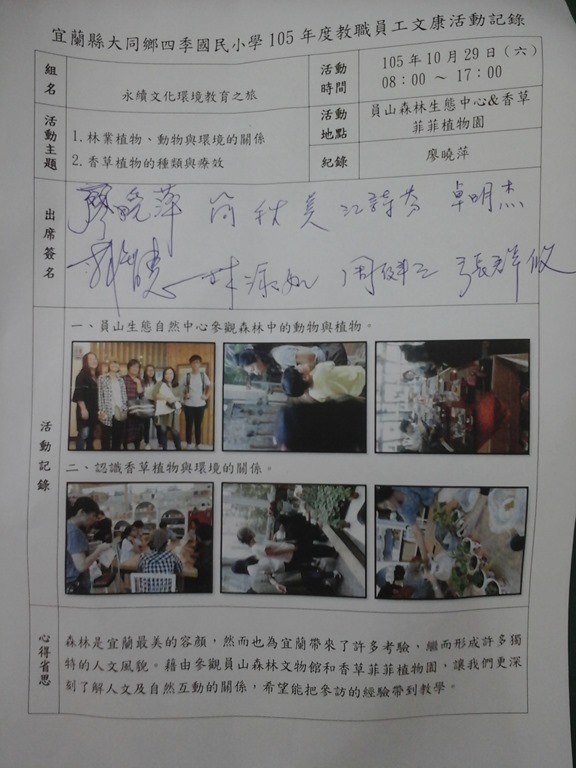 宜蘭縣大同鄉四季國民小學 105 年度教職員工文康活動記錄
組名
永續文化環境教育之旅
活動時間
105 年 10 月 29 日（六）
08：00 ～ 17：00
活動主題
1.林業植物、動物與環境的關係
2.香草植物的種類與療效
活動地點
員山森林生態中心&香草
菲菲植物園
紀錄
廖曉萍
出席簽名
廖曉萍 簡秋美 江詩芬 卓明杰
林淑如
活動記錄
一、員山生態自然中心參觀森林中的動物與植物。
二、認識香草植物與環境的關係。
心得省思
森林是宜蘭最美的容顏，然而也為宜蘭帶來了許多考驗，繼而形成許多獨
特的人文風貌。藉由參觀員山森林文物館和香草菲菲植物園，讓我們更深
刻了解人文及自然互動的關係，希望能把參訪的經驗帶到教學。